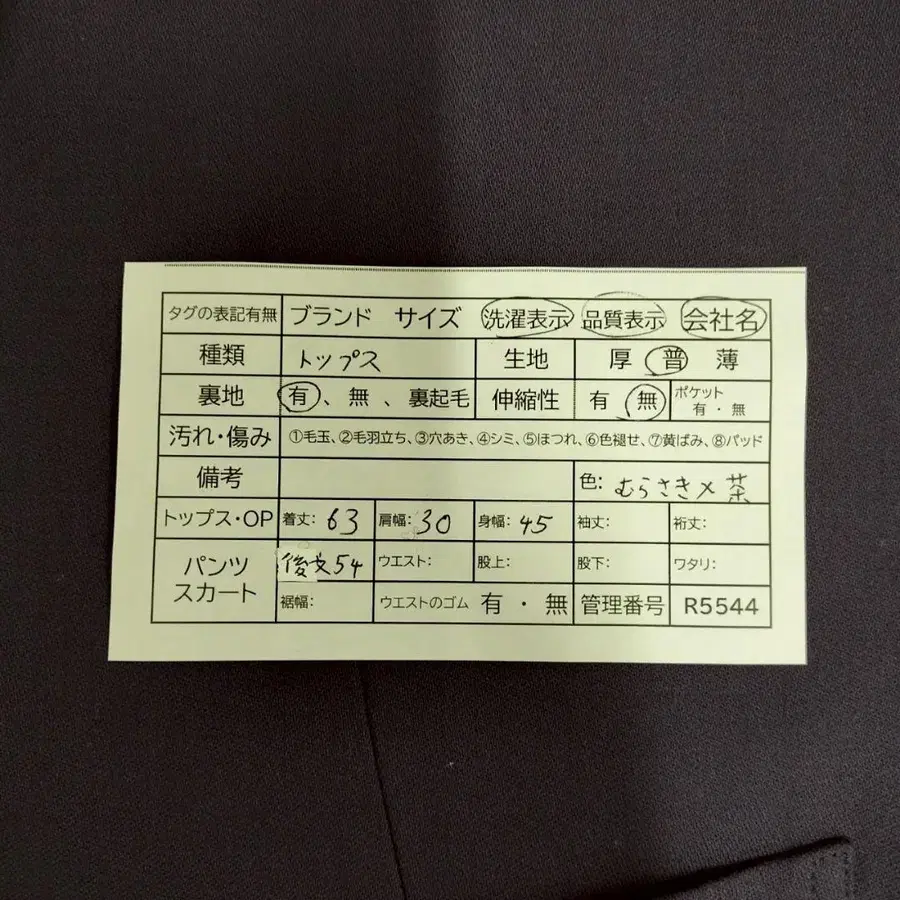 タグの表記有無 ブランド サイズ 洗濯表示 品質表示 会社名
種類 トップス 生地 厚 普 薄
裏地 有、無、裏起毛 伸縮性 有 無 ポケット 有・無
汚れ・傷み ①毛玉、②毛羽立ち、③穴あき、④シミ、⑤ほつれ、⑥色褪せ、⑦黄ばみ、⑧パッド
備考 色: むらさき×茶
トップス・OP 着丈: 63 肩幅: 30 身幅: 45 袖丈: 裄丈:
パンツ スカート 後丈54 ウエスト: 股上: 股下: ワタリ:
裾幅: ウエストのゴム 有・無 管理番号 R5544